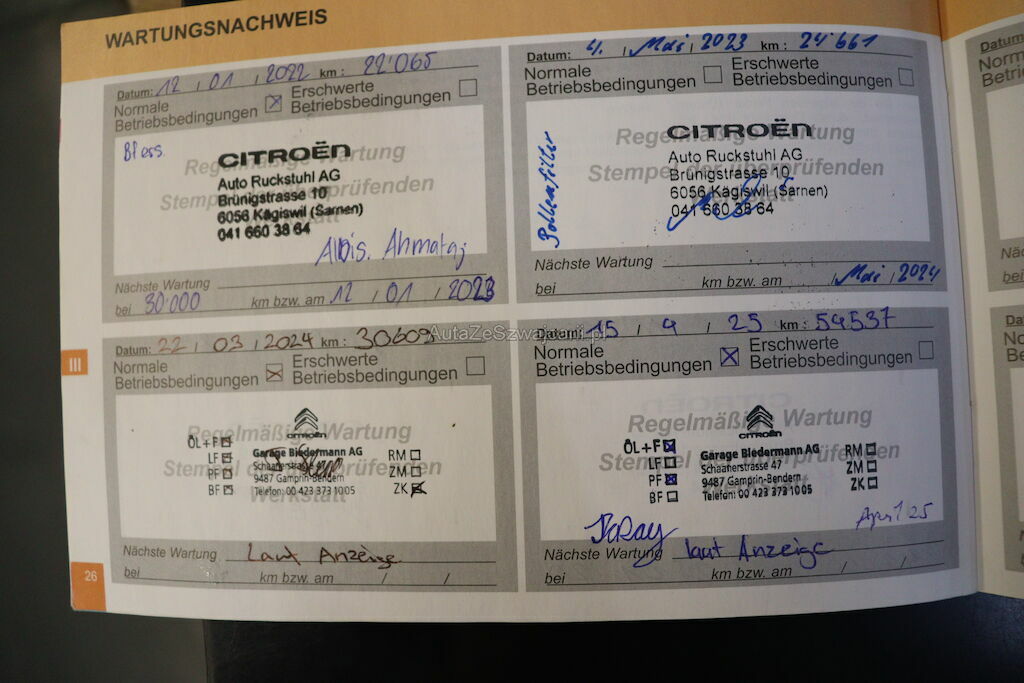 WARTUNGSNACHWEIS
Datum: 12 / 01 / 2022 km: 22'065
Normale Betriebsbedingungen ☒ Erschwerte Betriebsbedingungen ☐
Regelmäßige Wartung
Stempel der überprüfenden
CITROËN
Auto Ruckstuhl AG
Brünigstrasse 10
6056 Kägiswil (Sarnen)
041 660 38 64
Nächste Wartung
bei 30'000 km bzw. am 12 / 01 / 2023
Datum: 4. / Mai / 2023 km: 24'661
Normale Betriebsbedingungen ☐ Erschwerte Betriebsbedingungen ☐
Pollenfilter
Regelmäßige Wartung
Stempel der überprüfenden
CITROËN
Auto Ruckstuhl AG
Brünigstrasse 10
6056 Kägiswil (Sarnen)
041 660 38 64
Nächste Wartung
bei km bzw. am / Mai / 2024
III
Datum: 22 / 03 / 2024 km: 30609
Normale Betriebsbedingungen ☒ Erschwerte Betriebsbedingungen ☐
Regelmäßige Wartung
Stempel der überprüfenden
Werkstatt
CITROËN
ÖL+F ☒
LF ☒
PF ☒
BF ☒
Garage Biedermann AG
Schaanerstrasse 47
9487 Gamprin-Bendern
Telefon: 00 423 373 10 05
RM ☐
ZM ☐
ZK ☒
Nächste Wartung Laut Anzeige
bei km bzw. am / /
Datum: 15 / 4 / 25 km: 54537
Normale Betriebsbedingungen ☒ Erschwerte Betriebsbedingungen ☐
Regelmäßige Wartung
Stempel der überprüfenden
Werkstatt
CITROËN
ÖL+F ☒
LF ☐
PF ☒
BF ☐
Garage Biedermann AG
Schaanerstrasse 47
9487 Gamprin-Bendern
Telefon: 00 423 373 10 05
RM ☐
ZM ☐
ZK ☐
April 25
Nächste Wartung laut Anzeige
bei km bzw. am / /
26